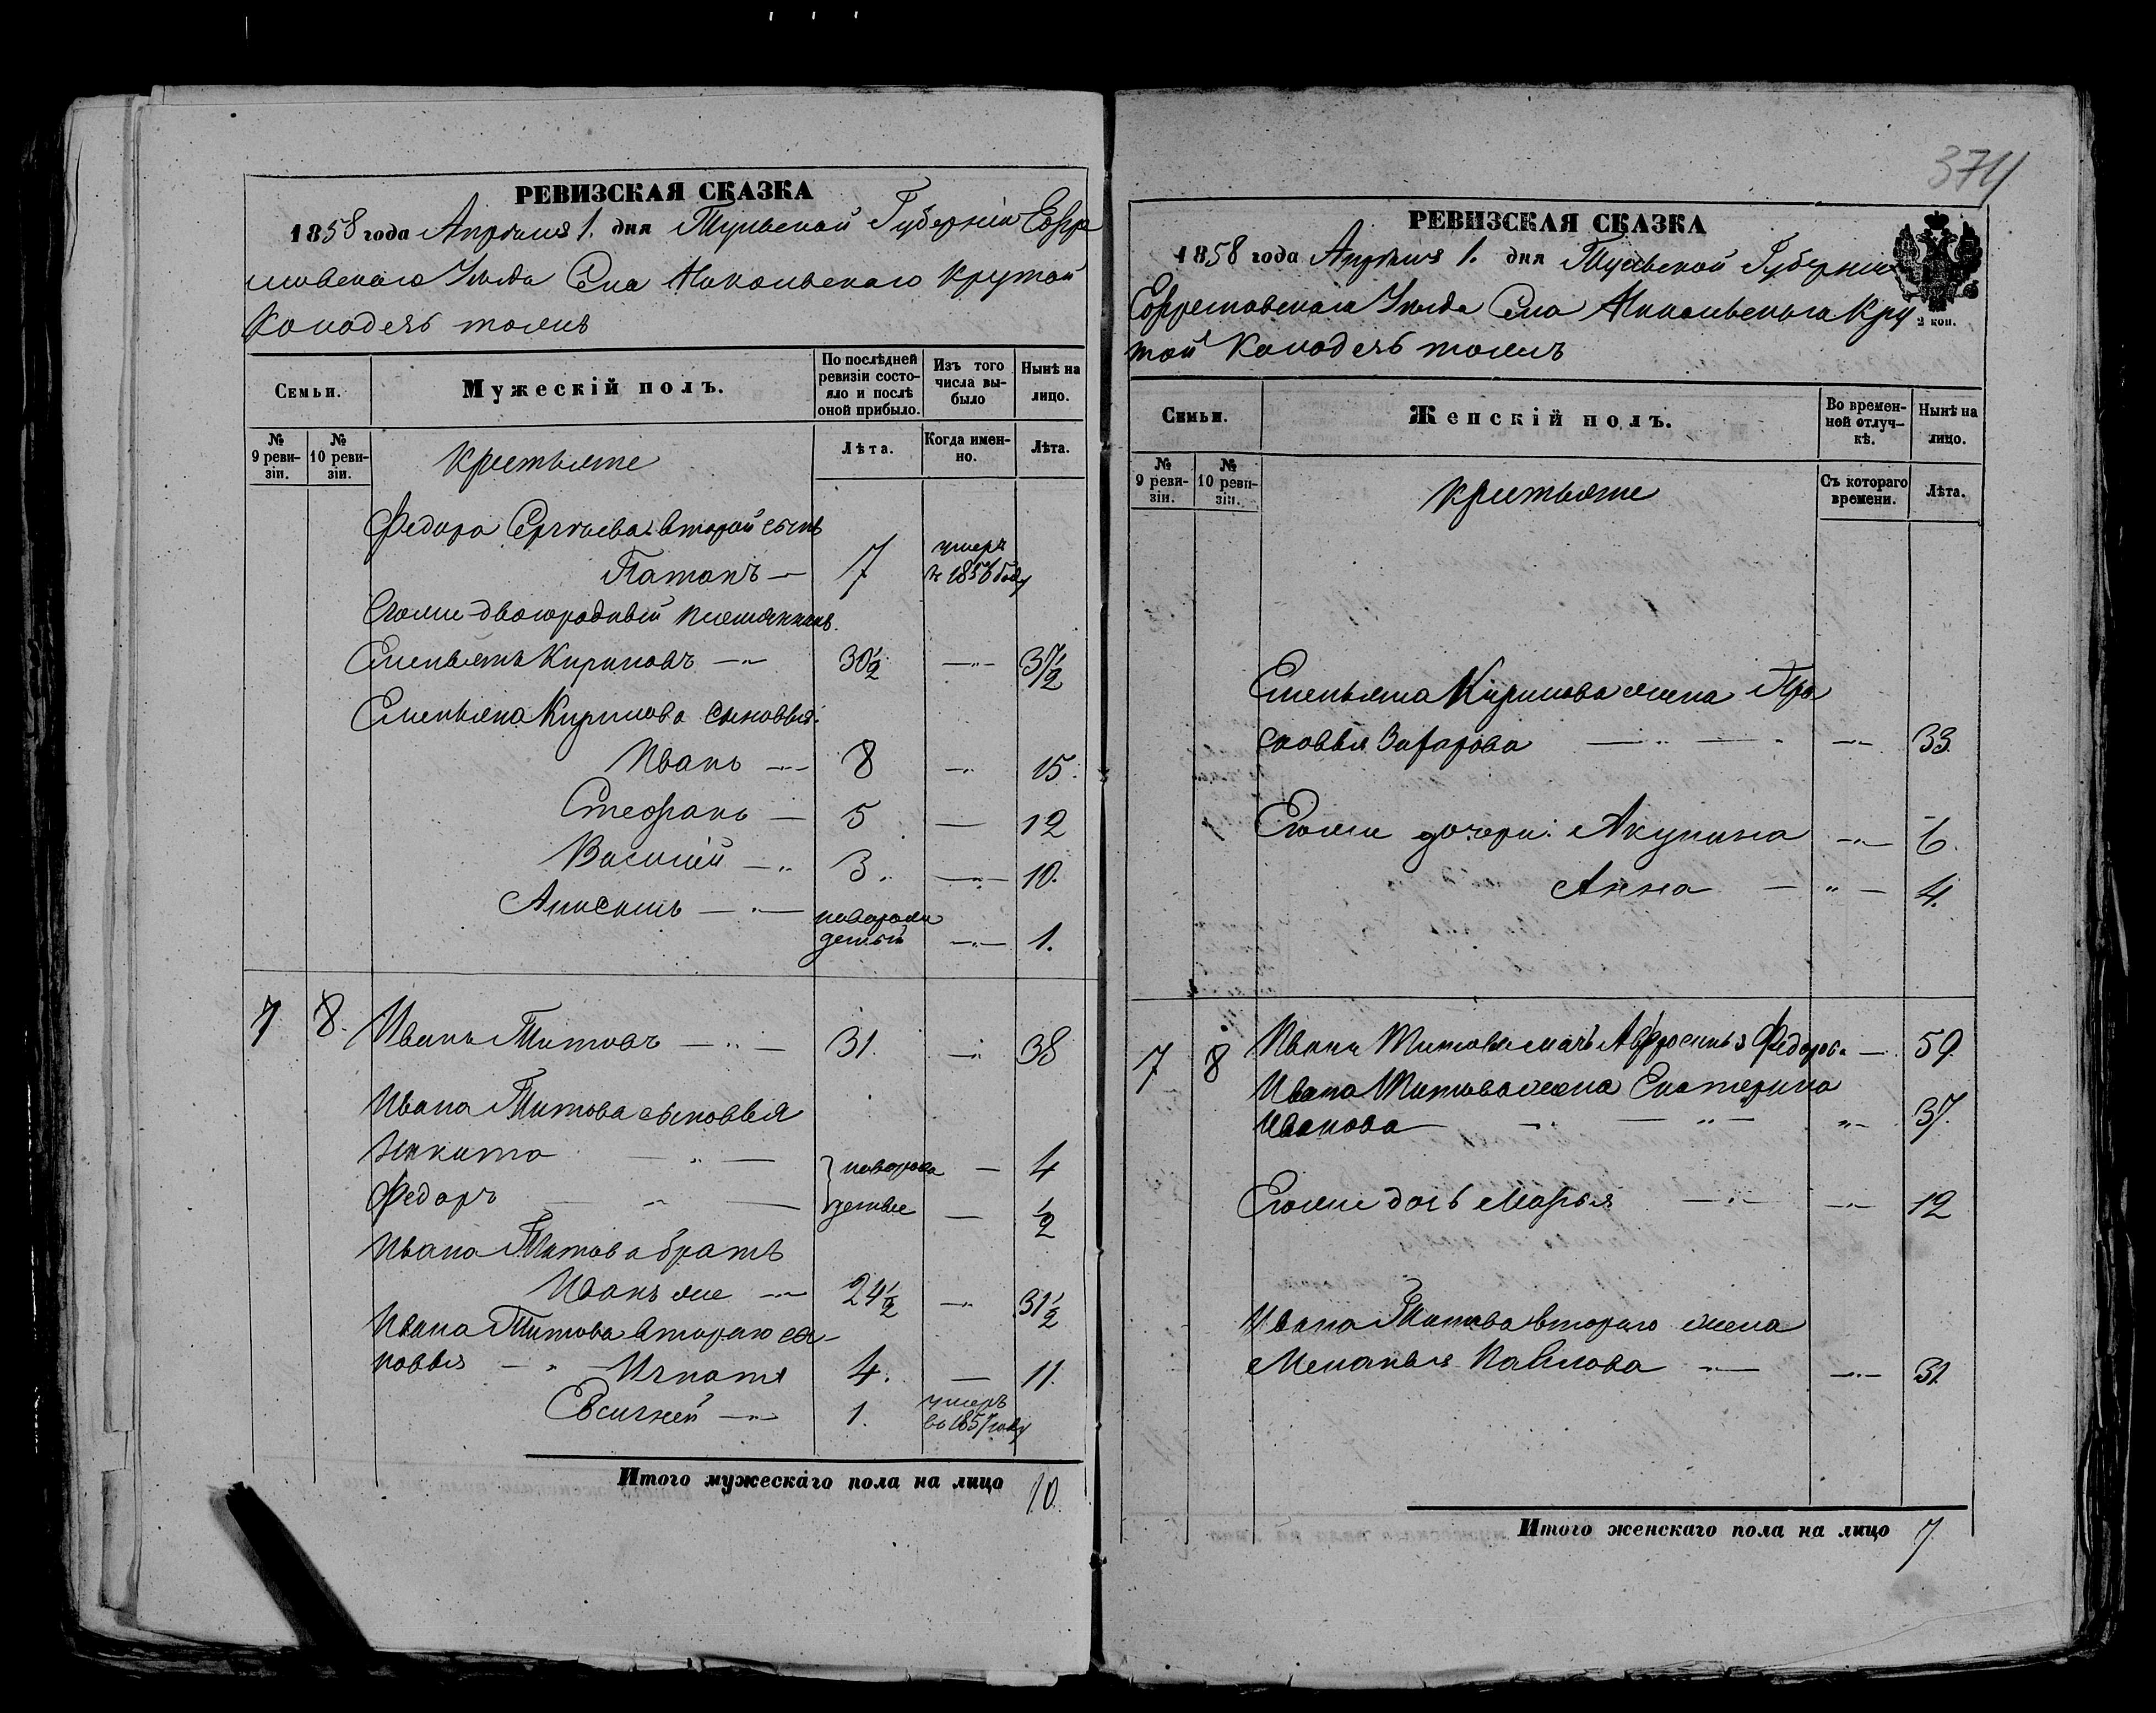 374
РЕВИЗСКАЯ СКАЗКА
1858 года Апрѣля 1. дня Тульской Губерніи Ефре
мовскаго Уѣзда Села Никольскаго Крутой
Колодезь тожъ
Семьи.
Мужескій полъ.
По послѣдней ревизіи состояло и послѣ оной прибыло.
Изъ того числа выбыло
Нынѣ на лицо.
№ 9 ревизіи.
№ 10 ревизіи.
Крестьяне
Лѣта.
Когда именно.
Лѣта.
Федора Сергѣева второй сынъ
Патапъ 7 умеръ въ 1856 году
Егоже двоюродный племянникъ
Емельянъ Кириловъ 30½ 37½
Емельяна Кирилова сыновья:
Иванъ 8 15.
Стефанъ 5 12
Василій 3. 10.
Алексѣй новорожденный 1.
7 8. Иванъ Титовъ 31. 38
Ивана Титова сыновья
Никита новорож 4
Федоръ денные ½
Ивана Титова братъ
Иванъ же 24½ 31½
Ивана Титова втораго сы-
новья Игнатъ 4. 11.
Евсигней 1. умеръ въ 1857 году
Итого мужескаго пола на лицо 10.
РЕВИЗСКАЯ СКАЗКА
1858 года Апрѣля 1. дня Тульской Губерніи
Ефремовскаго Уѣзда Села Никольскаго Кру
той Колодезь тожъ
2 коп.
Семьи.
Женскій полъ.
Во временной отлучкѣ.
Нынѣ на лицо.
№ 9 ревизіи.
№ 10 ревизіи.
Крестьяне
Съ котораго времени.
Лѣта.
Емельяна Кирилова жена Пра
сковья Захарова 33.
Егоже дочери: Акулина 6.
Анна 4.
7 8 Ивана Титова мать Афросинья Федоров. 59.
Ивана Титова жена Екатерина
Иванова 37.
Егоже дочь Марья 12
Ивана Титова втораго жена
Меланья Павлова 31.
Итого женскаго пола на лицо 7.